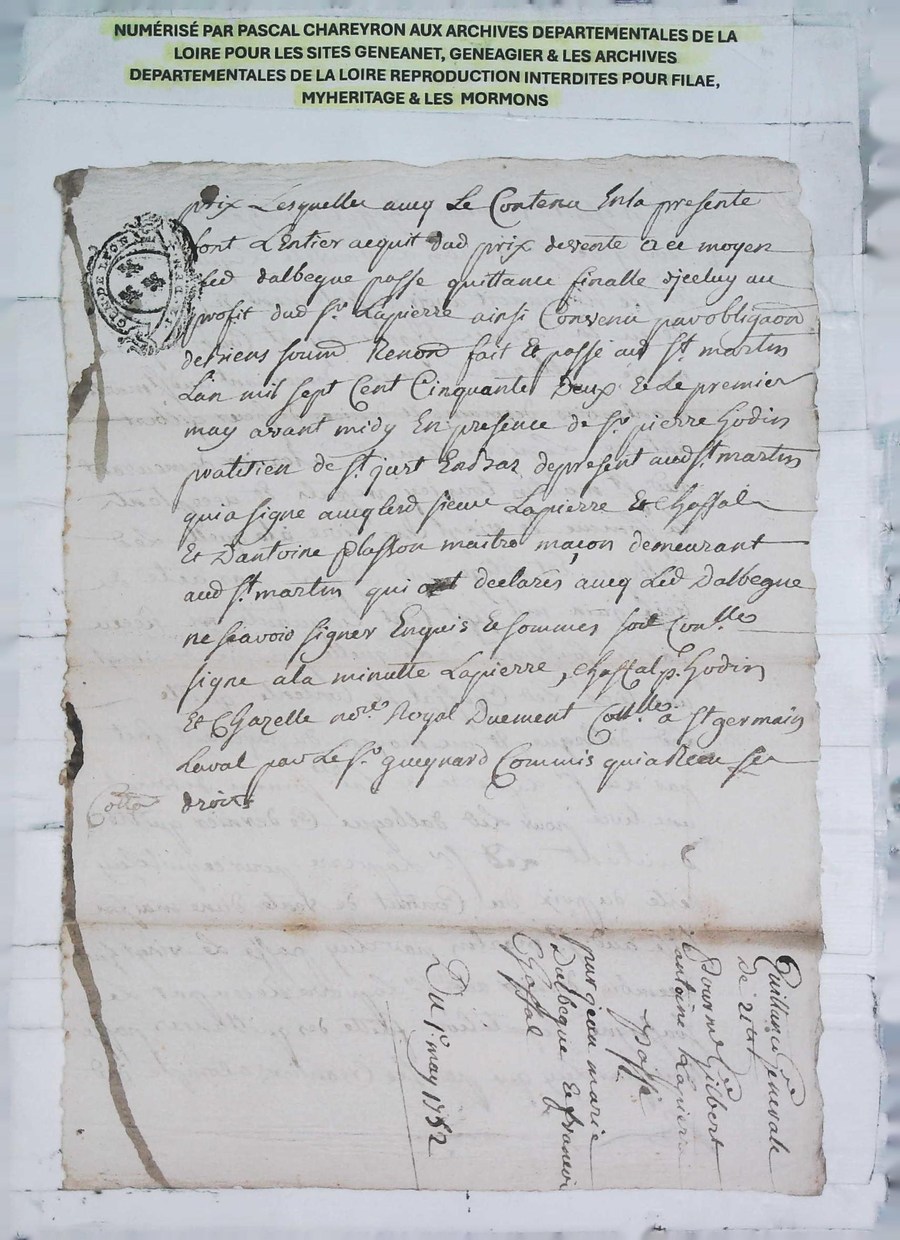 NUMÉRISÉ PAR PASCAL CHAREYRON AUX ARCHIVES DEPARTEMENTALES DE LA
LOIRE POUR LES SITES GENEANET, GENEAGIER & LES ARCHIVES
DEPARTEMENTALES DE LA LOIRE REPRODUCTION INTERDITES POUR FILAE,
MYHERITAGE & LES MORMONS
prix Lesquelles avecq Le Contenu Enla presente
font L'Entier acquit dud prix devente a ce moyen
led dalbegue passe quittance finalle d'jceluy au
profit dud Sr Lapierre ainsi Convenu par obligaon
de biens soumd Renond fait Et passé aud St martin
L'an mil sept Cent Cinquante Deux Et Le premier
may avant midy En presence de Sr pierre Godin
pratitien de St just En Bas de present aud St martin
qui a signe avecq lesd sieur Lapierre Et Chassal
Et D'antoine plasson maitre maçon demeurant
aud St martin qui ont declarés avecq Led Dalbegue
ne scavoir signer Enquis Et sommés soit Conllé
signe a la minutte Lapierre, Chassal, p. Godin
Et Chazelle nore Royal Duement Conllé a St germain
Laval par Le Sr gueynard Commis qui a Receu ses
droits
Cotta
GEN DE LYON
Quittance Generale
De 21 #
Pour me Gilbert
antoine Lapierre
passé
par jean marie
Dalbegue Et francois
Chassal
Du 1er may 1752